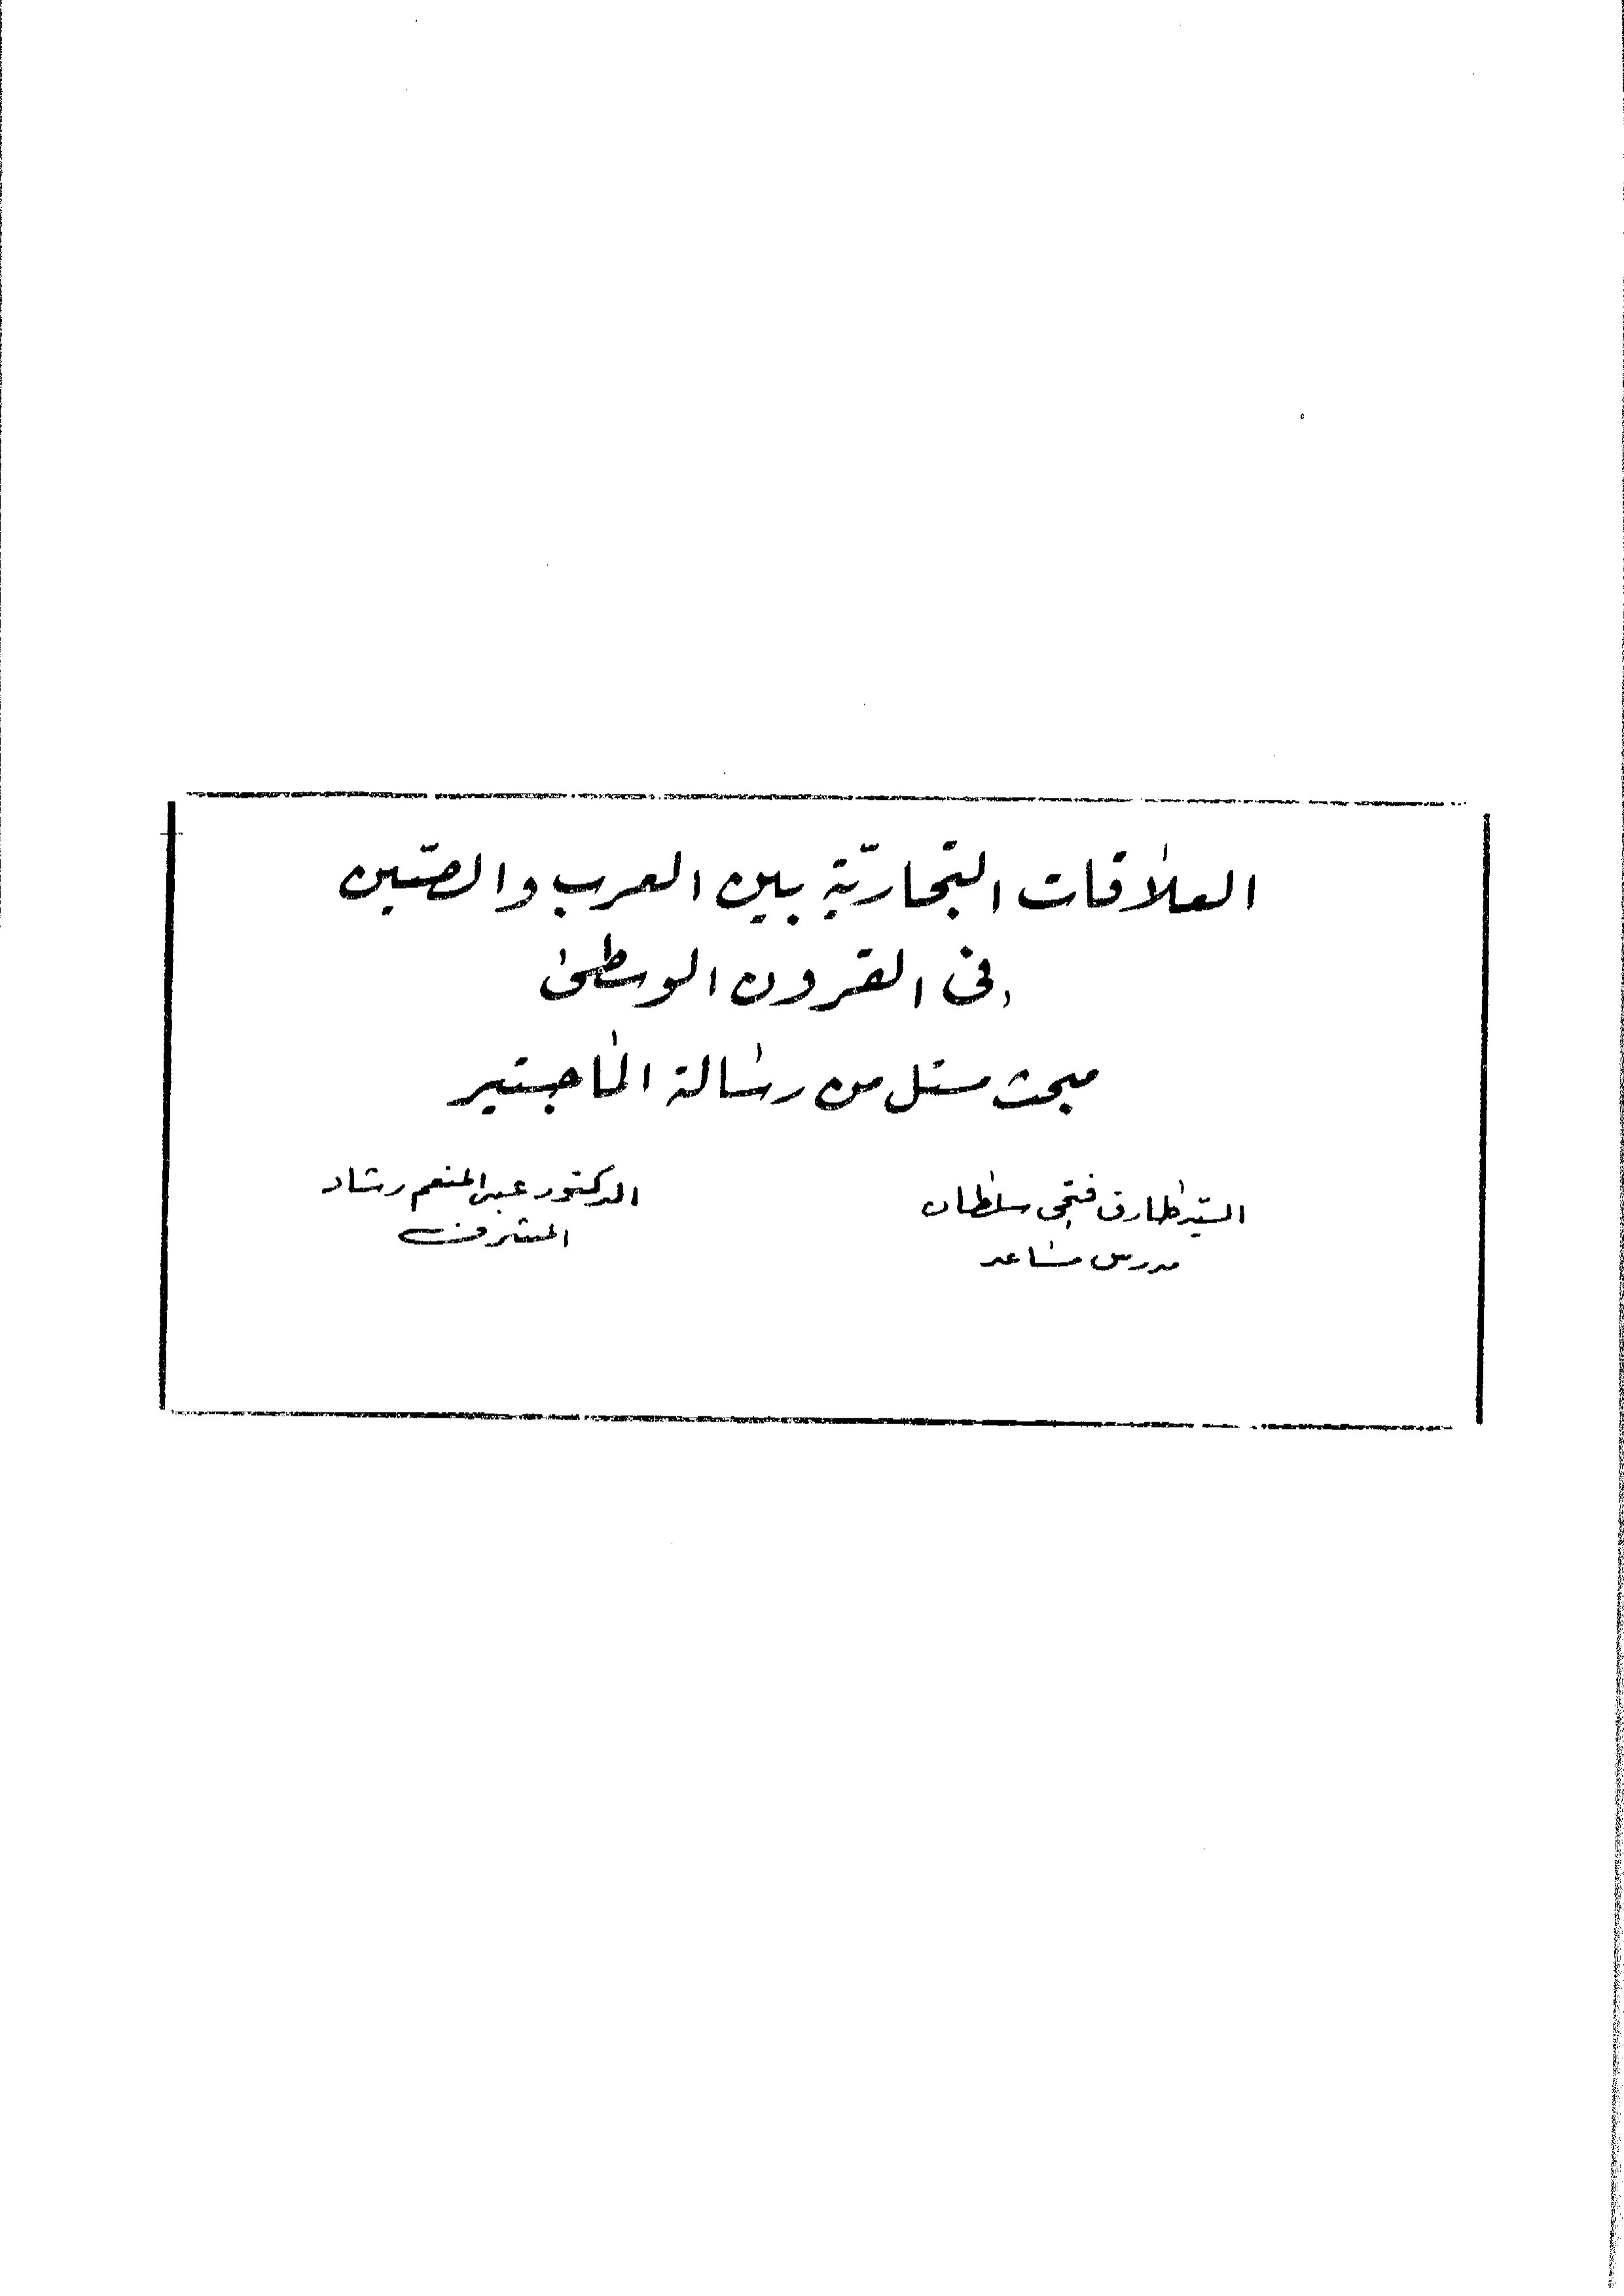 العلاقات التجاريّة بين العرب والصّين
في القرون الوسطى
مبحث مستل من رسالة الماجستير
السيد طارق فتحي سلطان
مدرس مساعد
الدكتور عبد المنعم رشاد
المشرف